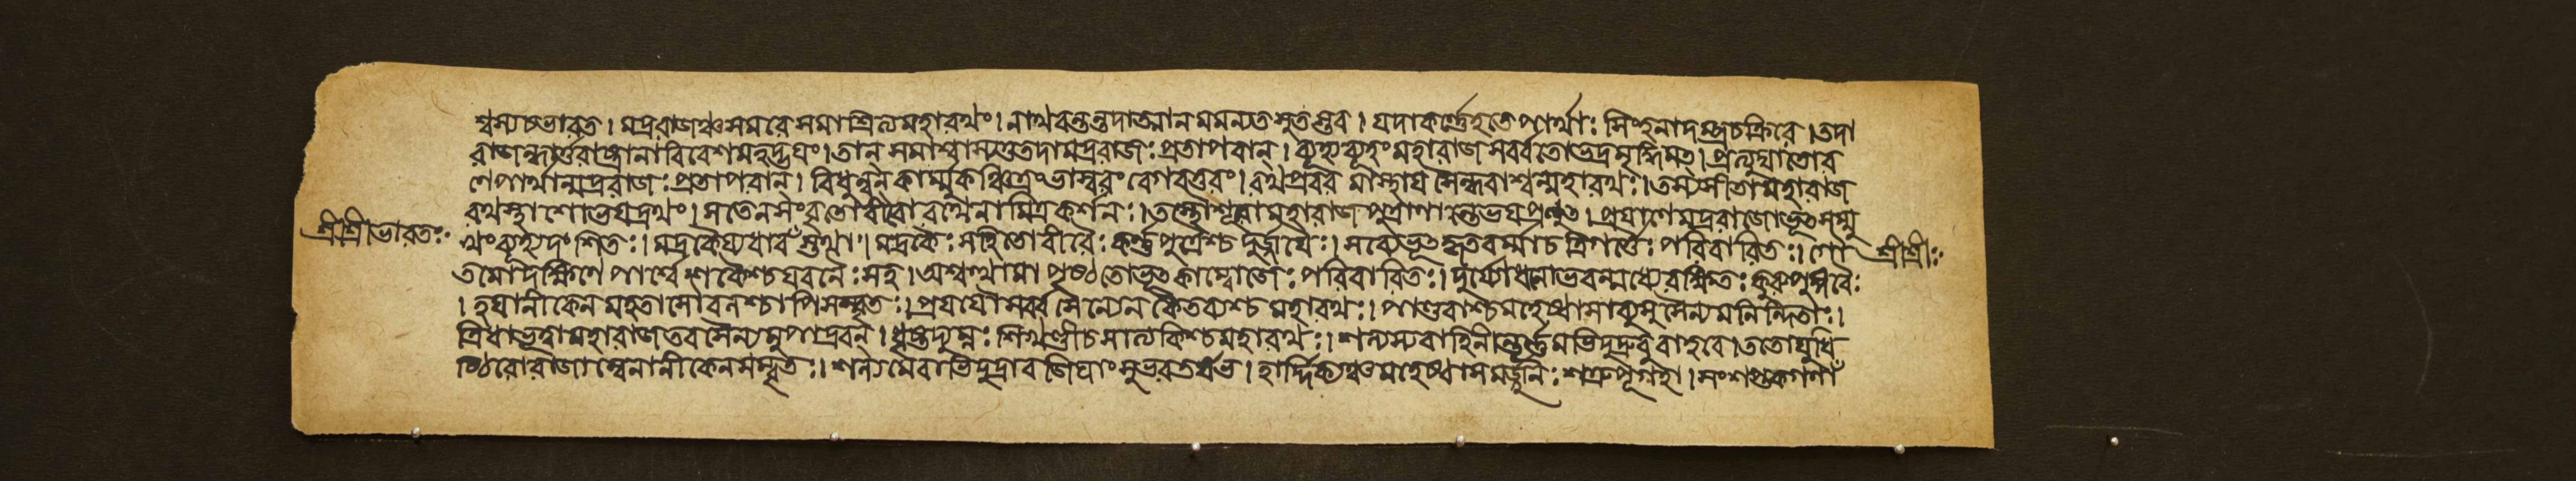 শ্বস্যচভারত। মদ্ররাজঞ্চসমরে সমাশ্রিত্যমহারথং। নাথবন্তন্তদাত্মান মমন্যত সুতস্তব। যদাকর্ণ্ণেহতেপার্থাঃ সিংহনাদম্প্রচক্রিরে। তদা
রাজন্ধার্ত্তরাষ্ট্রানাবিবেশমহদ্ভয়ং। তান সমাশ্বাস্যতুতদামদ্ররাজঃ প্রতাপবান্। ব্যূহ্যব্যূহং মহারাজ সর্ব্বতোভদ্রমৃদ্ধিমত্। প্রত্যুদ্যাতোর
ণেপার্থান্মদ্ররাজঃ প্রতাপবান। বিধুন্বন কার্ম্মুকঞ্চিত্রং ভাস্বরং বেগবত্তরং। রথপ্রবর মাস্থায় সৈন্ধবাশ্বন্মহারথঃ। তস্যসীতামহারাজ
রথস্থাশোভয়দ্রথং। সতেনসংবৃতোবীরোরথেনামিত্রকর্শনঃ। তস্থৌশূরোমহারাজ পুত্রাণান্তেভয়প্রণুত। প্রয়াণেমদ্ররাজোভূত্সম্মু
শ্রীশ্রীভারতঃ
খংব্যূহ্যদংশিতঃ। মদ্রকৈঃ সহিতোবীরৈঃ কর্ণ্ণপুত্রৈশ্চদুর্জ্জয়ৈঃ। সব্যেভূত্কৃতবর্ম্মাচ ত্রিগর্ত্তৈঃ পরিবারিতঃ। গৌ
শ্রীশ্রীঃ
তমোদক্ষিণে পার্শ্বে শকৈশ্চযবনৈঃ সহ। অশ্বত্থামা পৃষ্ঠতোভূত কাম্বোজৈঃ পরিবারিতঃ। দুর্য্যোধনোভবন্মধ্যেরক্ষিতঃ কুরুপুঙ্গবৈঃ
। হয়ানীকেন মহতাসৌবলশ্চাপিসম্বৃতঃ। প্রযযৌসর্ব্বসৈন্যেন কৈতব্যশ্চ মহারথঃ। পাণ্ডবাশ্চমহেষ্বাসাব্যূহ্যসৈন্যমনিন্দিতাঃ।
ত্রিধাভূত্বামহারাজ তবসৈন্যমুপাদ্রবন্। ধৃষ্টদ্যুম্নঃ শিখণ্ডীচ সাত্যকিশ্চমহারথঃ। শল্যস্যবাহিনীন্তূর্ণ্ণমভিদুদ্রুবুরাহবে। ততোযুধি
ষ্ঠিরোরাজাস্বেনানীকেনসম্বৃতঃ। শল্যমেবাভিদুদ্রাব জিঘাংসুভরতর্ষভ। হার্দ্দিক্যঞ্চমহেষ্বাসমর্জ্জুনঃ শত্রুপূগহা। সংশপ্তকগণাঁ